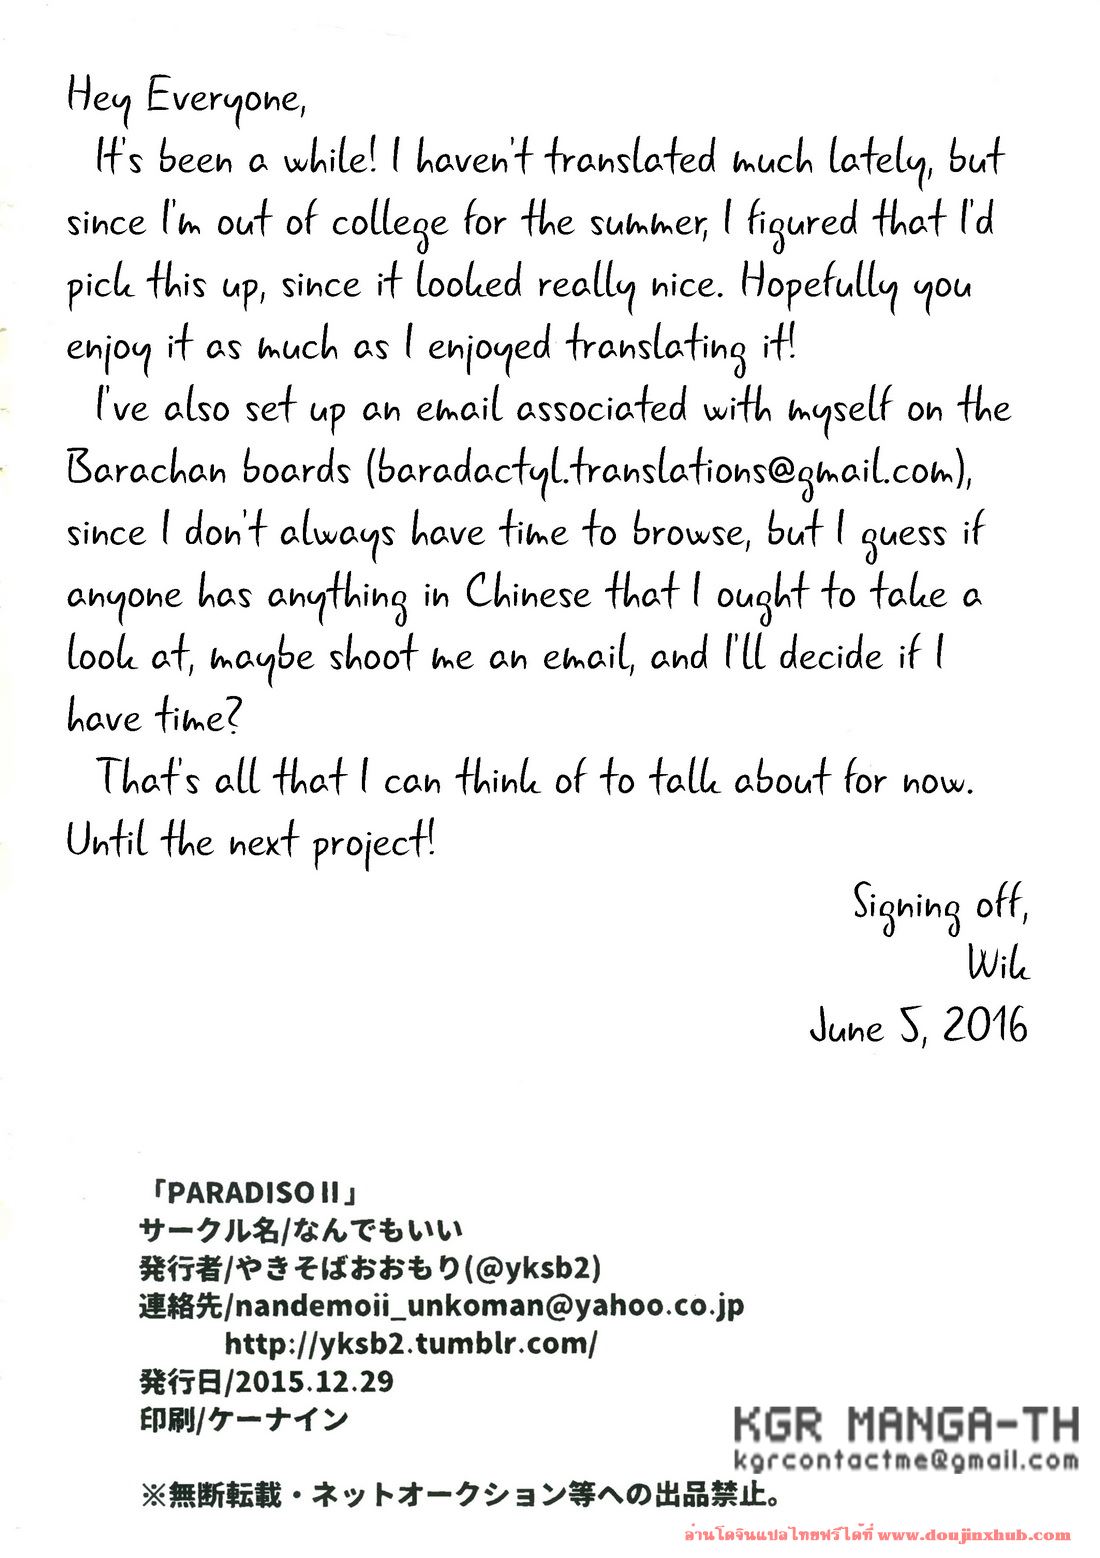 Hey Everyone,
It's been a while! I haven't translated much lately, but
since I'm out of college for the summer, I figured that I'd
pick this up, since it looked really nice. Hopefully you
enjoy it as much as I enjoyed translating it!
I've also set up an email associated with myself on the
Barachan boards (baradactyl.translations@gmail.com),
since I don't always have time to browse, but I guess if
anyone has anything in Chinese that I ought to take a
look at, maybe shoot me an email, and I'll decide if I
have time?
That's all that I can think of to talk about for now.
Until the next project!
Signing off,
Wik
June 5, 2016
「PARADISO II」
サークル名/なんでもいい
発行者/やきそばおおもり(@yksb2)
連絡先/nandemoii_unkoman@yahoo.co.jp
http://yksb2.tumblr.com/
発行日/2015.12.29
印刷/ケーナイン
KGR MANGA-TH
kgrcontactme@gmail.com
※無断転載・ネットオークション等への出品禁止。
อ่านโดจินแปลไทยฟรีได้ที่ www.doujinxhub.com